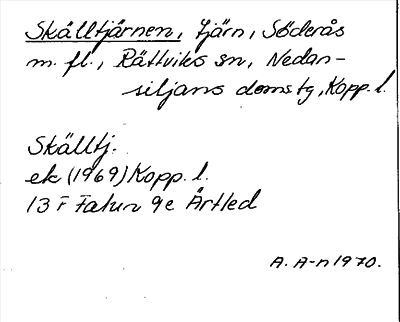 Skälltjärnen, tjärn, Söderås
m. fl., Rättviks sn, Nedan-
siljans domstg, Kopp. l.
Skälltj.
ek (1969) Kopp. l.
13 F Falun 9e Ärtled
A. A-n 1970.